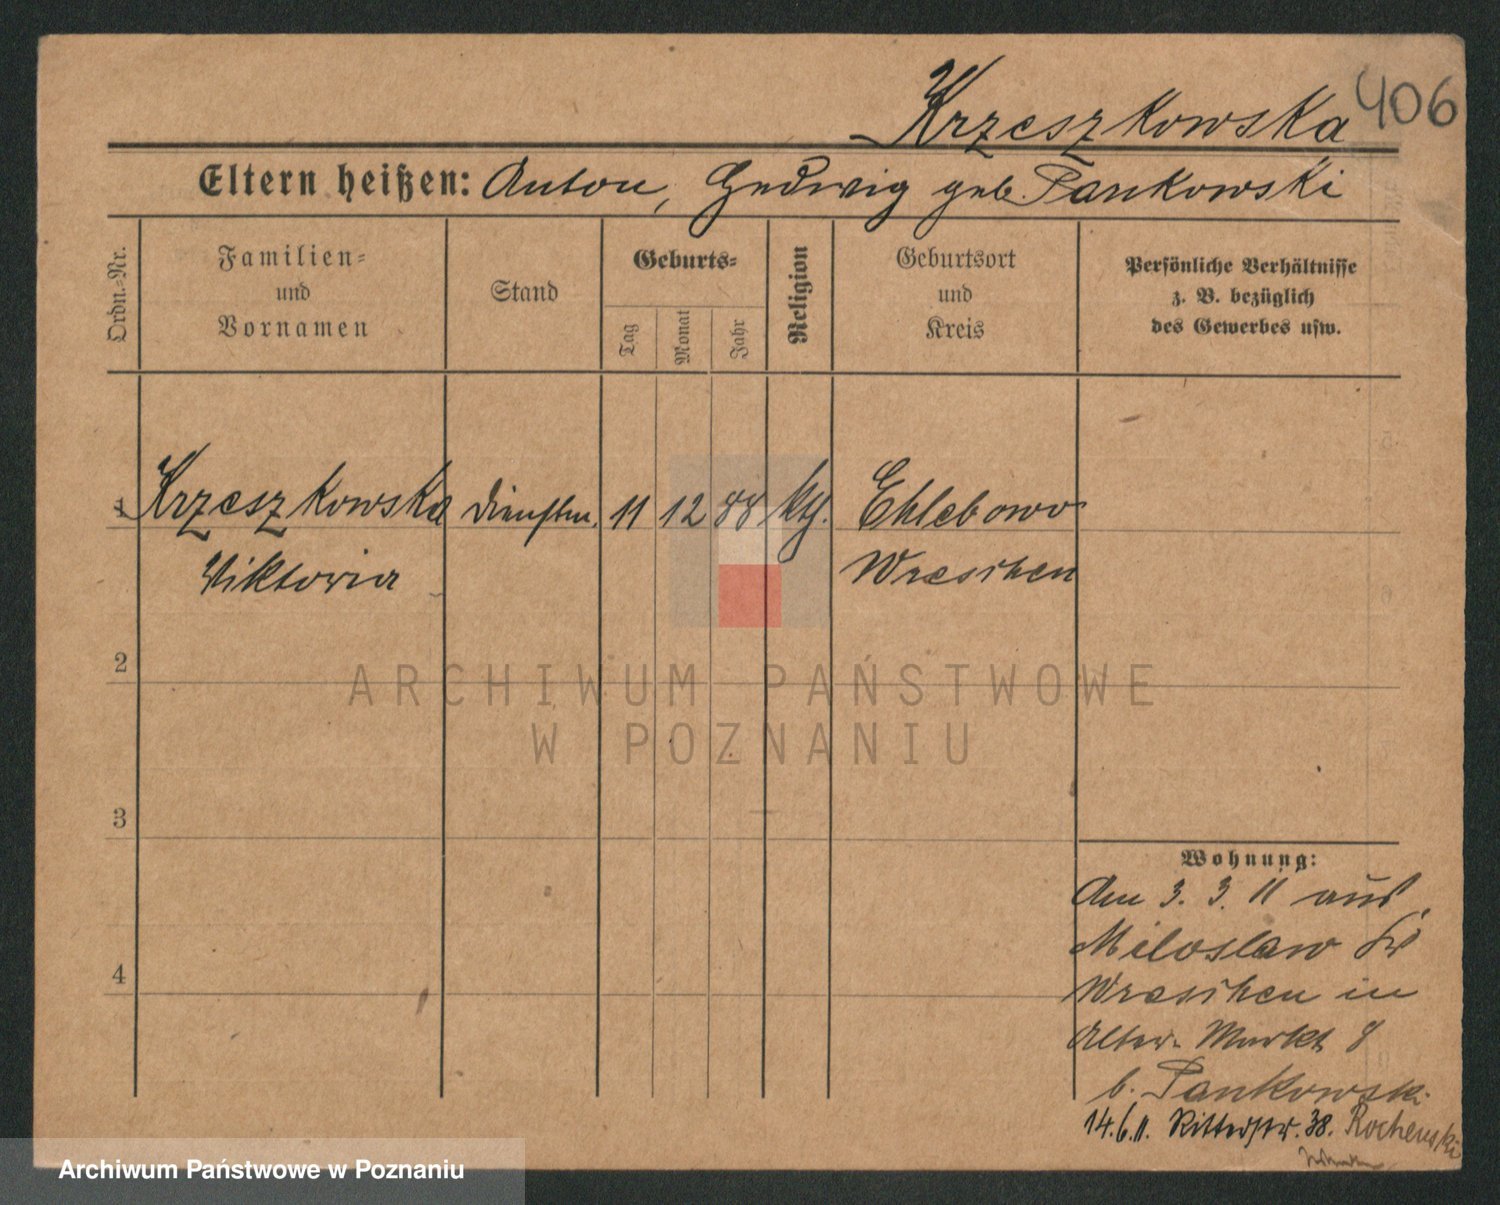 Krzeszkowska 406
Eltern heißen: Anton, Hedwig geb. Pankowski
Ordn.-Nr.
Familien-
und
Vornamen
Stand
Geburts-
Tag
Monat
Jahr
Religion
Geburtsort
und
Kreis
Persönliche Verhältnisse
z. B. bezüglich
des Gewerbes usw.
1 Krzeszkowska Dienstm. 11 12 88 kth. Chlebowo
Viktoria Wreschen
2
3
4
Wohnung:
Am 3. 3. 11 aus
Miloslaw Kr
Wreschen in
Alter Markt 8
b. Pankowski
14.6.11. Ritterstr. 38. Rochenski
ARCHIWUM PAŃSTWOWE
W POZNANIU
Archiwum Państwowe w Poznaniu